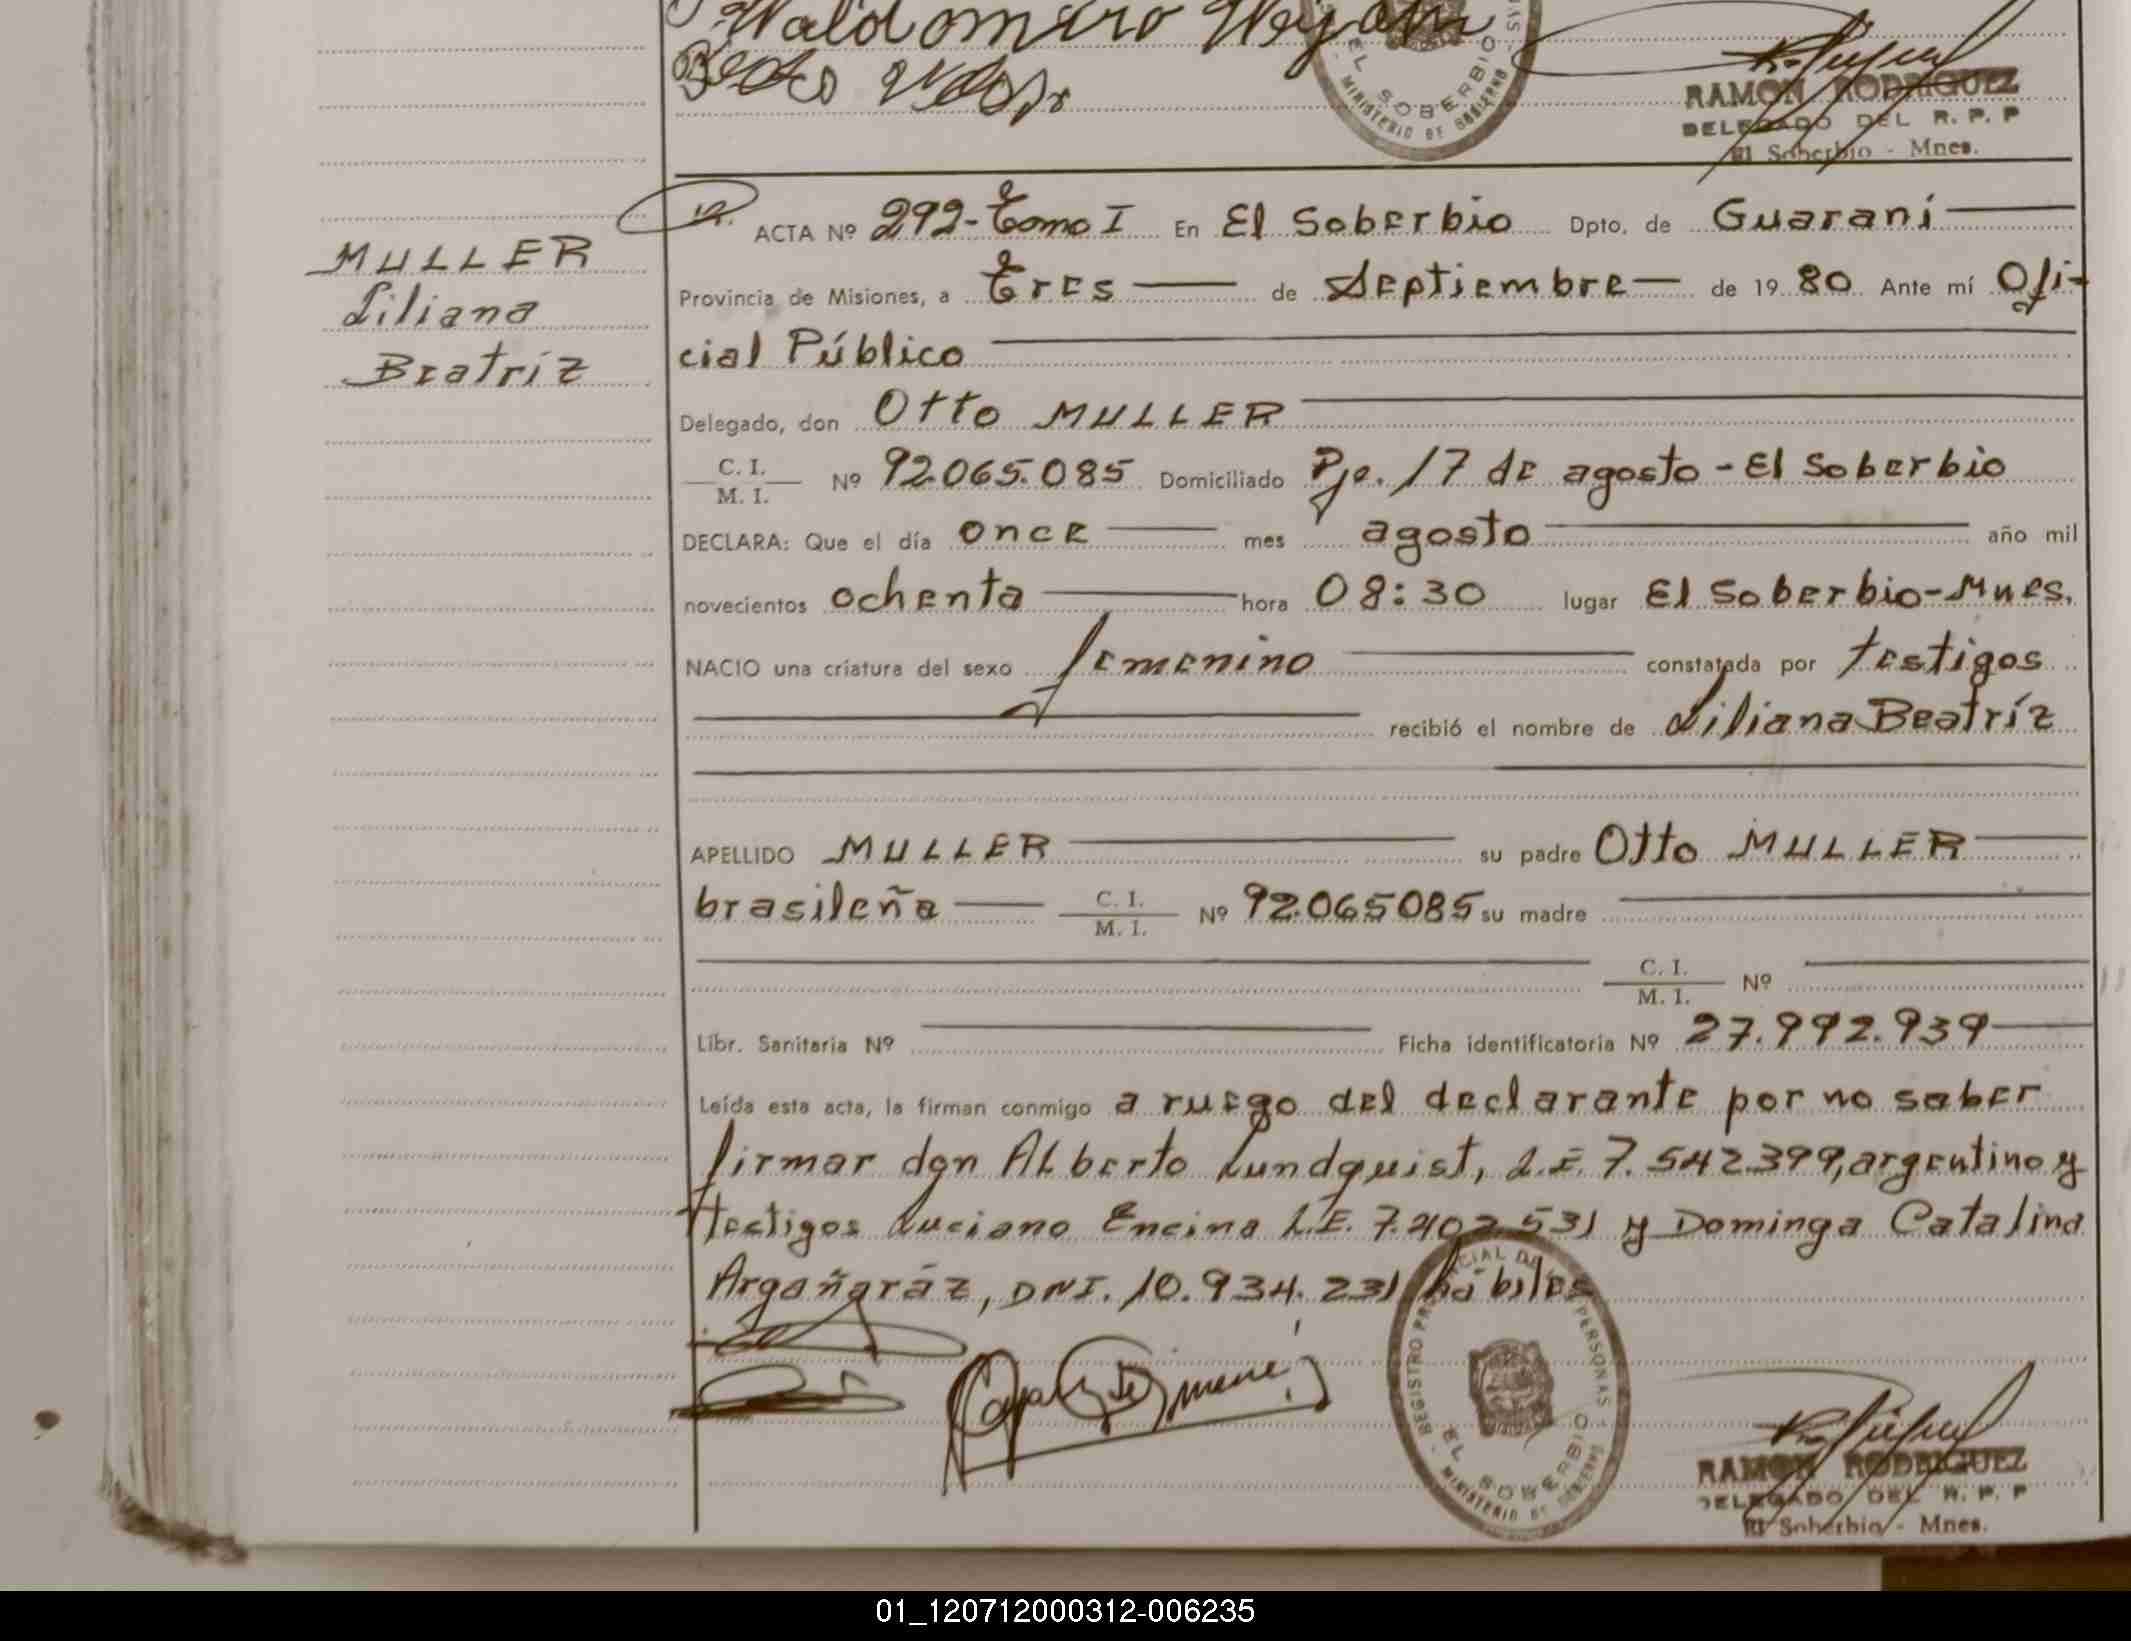 Waldomiro
EL SOBERBIO
MINISTERIO DE GOBIERNO
RAMON RODRIGUEZ
DELEGADO DEL R. P. P
El Soberbio - Mnes.
MULLER
Liliana
Beatríz
ACTA Nº 292-Tomo I En El Soberbio Dpto. de Guaraní
Provincia de Misiones, a Tres de Septiembre de 19 80 Ante mí Ofi-
cial Público
Delegado, don Otto MULLER
C. I.
M. I. Nº 92.065.085 Domiciliado Pje. 17 de agosto - El Soberbio
DECLARA: Que el día once mes agosto año mil
novecientos ochenta hora 08:30 lugar El Soberbio-Mnes.
NACIO una criatura del sexo femenino constatada por testigos
recibió el nombre de Liliana Beatríz
APELLIDO MULLER su padre Otto MULLER
brasileña C. I.
M. I. Nº 92.065085 su madre
C. I.
M. I. Nº
Libr. Sanitaria Nº Ficha identificatoria Nº 27.992.939
Leída esta acta, la firman conmigo a ruego del declarante por no saber
firmar don Alberto Lundquist, L.E. 7.542.399, argentino y
testigos Luciano Encina L.E. 7.402.531 y Dominga Catalina
Argañaráz, DNI. 10.934.231 hábiles
REGISTRO PROVINCIAL DE LAS PERSONAS
EL SOBERBIO
MINISTERIO DE GOBIERNO
RAMON RODRIGUEZ
DELEGADO DEL R. P. P
El Soberbio - Mnes.
01_120712000312-006235